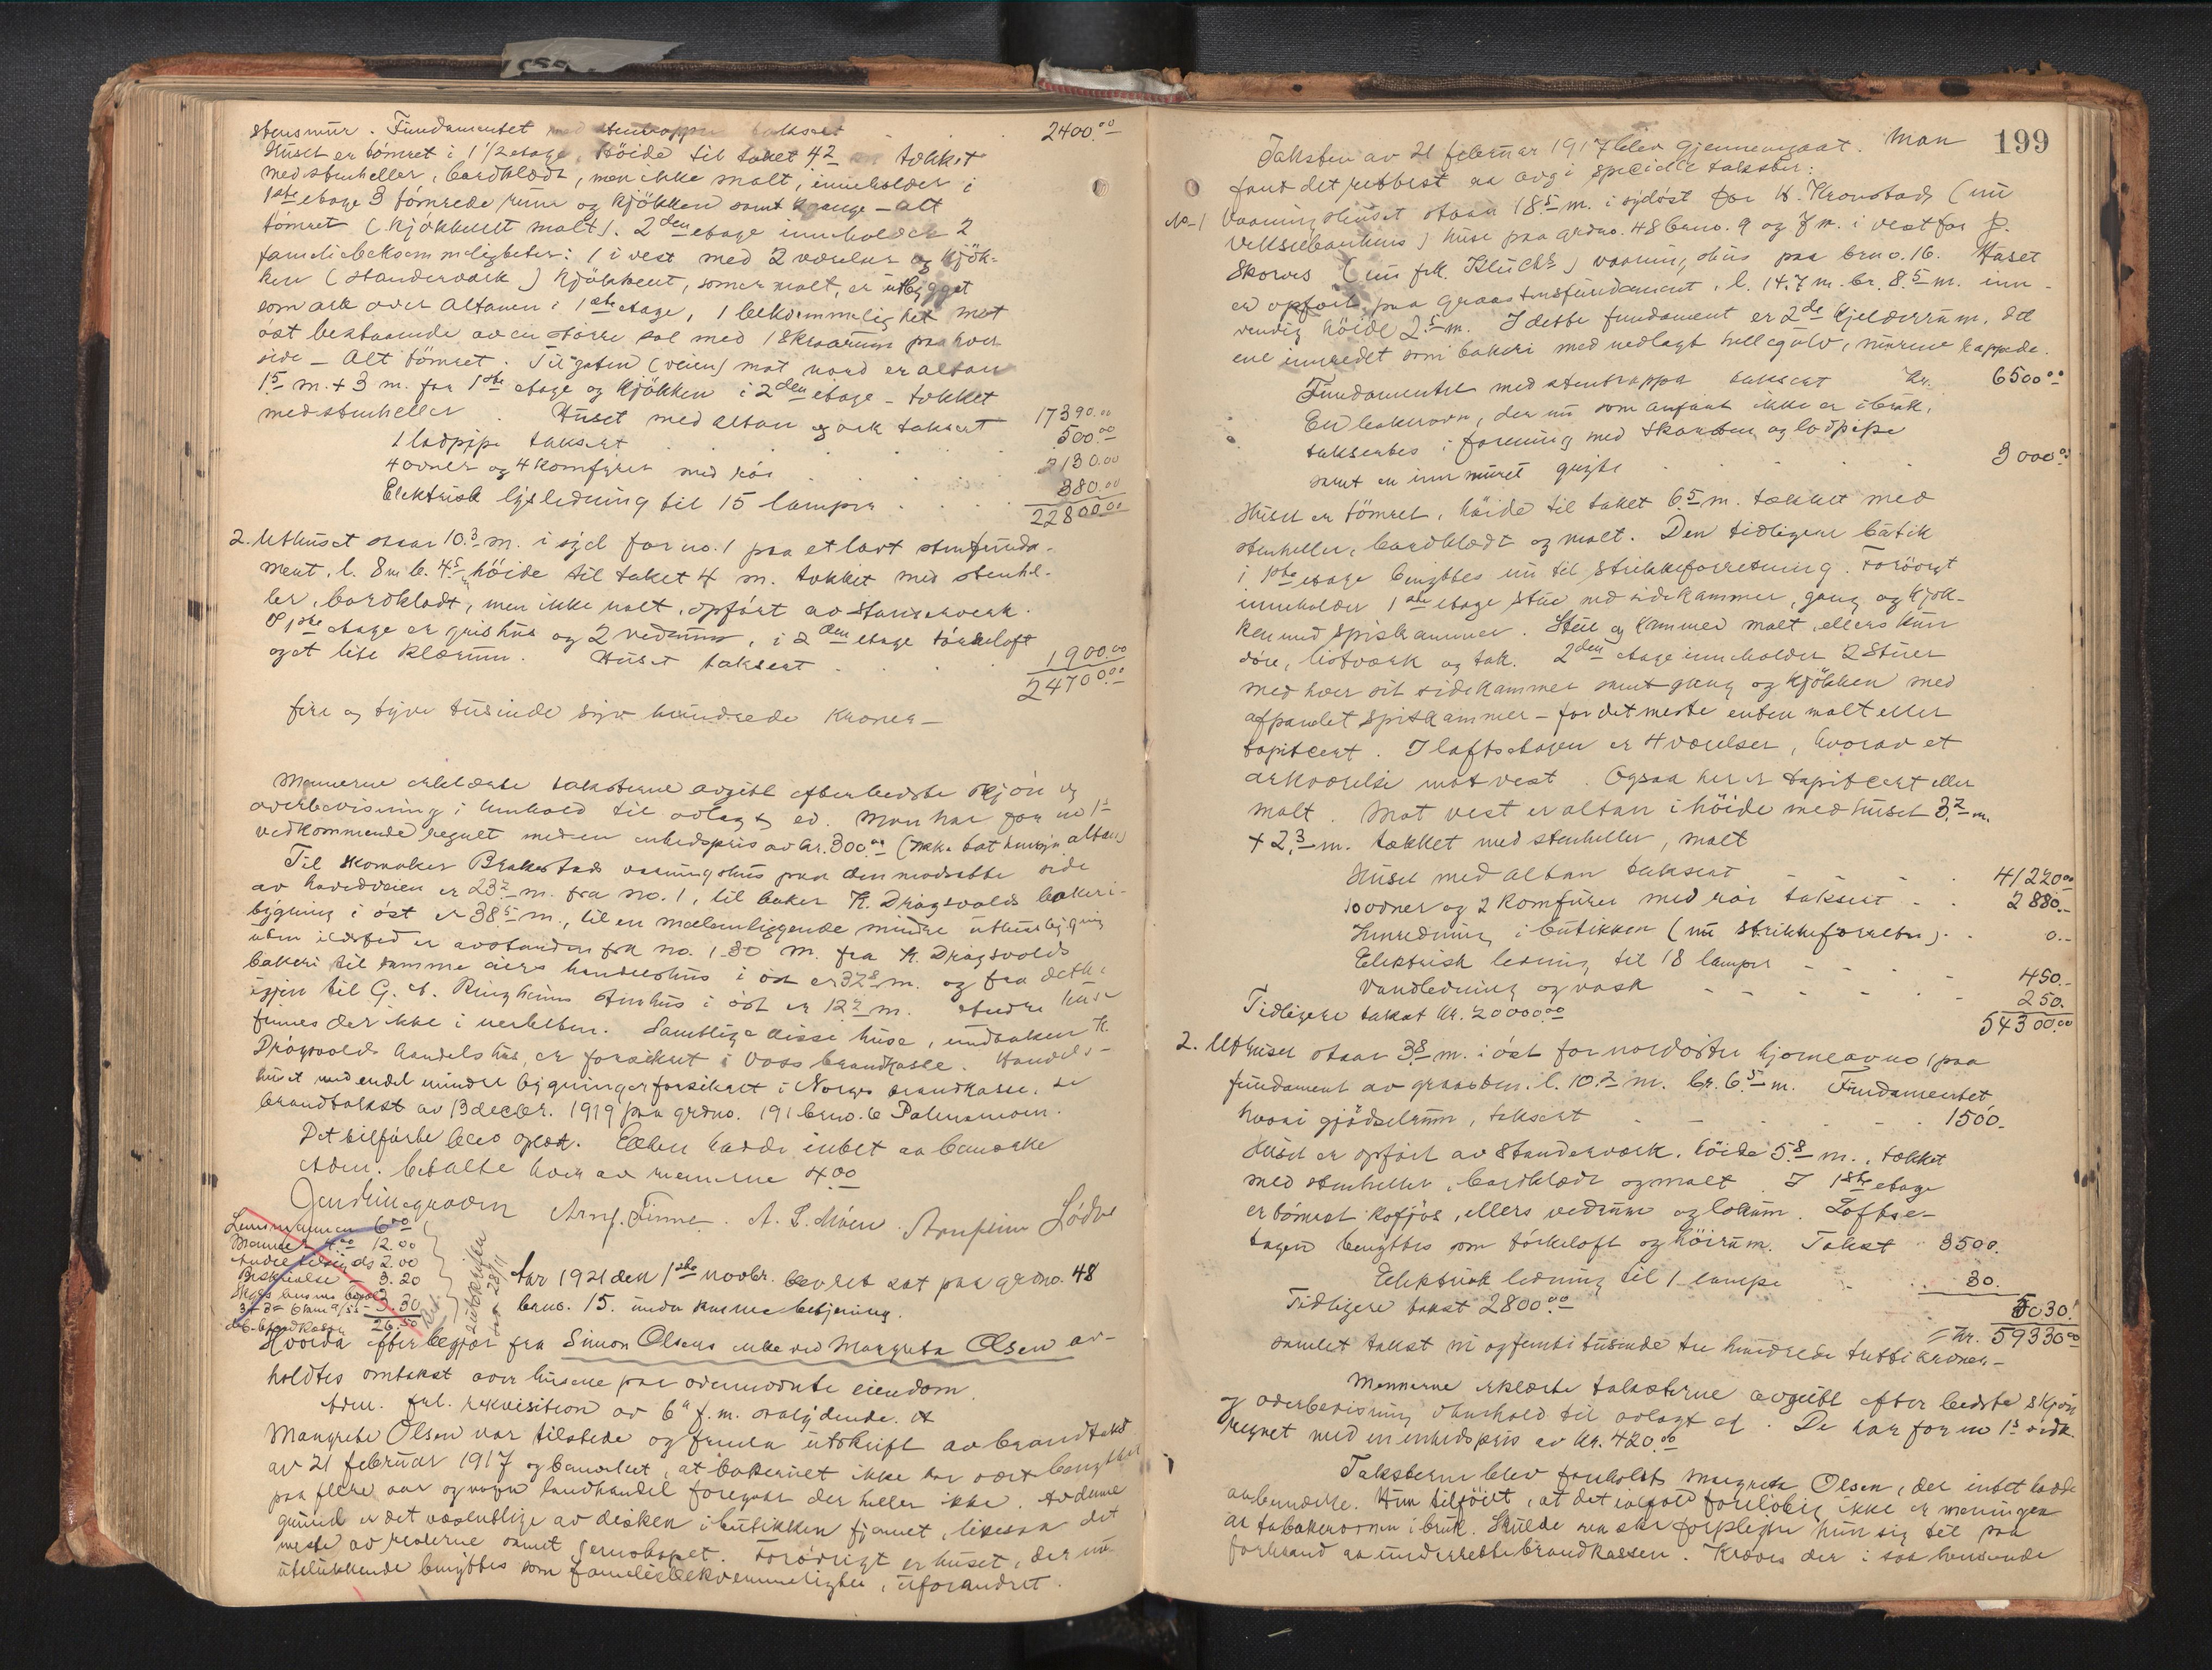 stensmur. Fundamentet med stentrapper taksert 2400.00
Huset er tømret i 1 1/2 etage, høide til taket 4.2 m tækket
med stenheller, bordklædt, men ikke malt, inneholder i
1ste etage 3 tømrede rum og kjøkken samt gange - alt
tømret (kjøkkenet malt). 2den etage inneholder 2
familiebekvemmeligheter: 1 i vest med 2 værelser og kjøk-
ken (standerværk) kjøkkenet, som er malt, er utbygget
som ark over altanen i 1ste etage, 1 bekvemmelighet mot
øst bestaaende av en større sal med 1 skraarum paa hver
side - Alt tømret. Til gaten (veien) mot nord er altan
1.5 m. + 3 m. for 1ste etage og kjøkken i 2den etage - tækket
med stenheller. Huset med altan og ark taksert 17390.00
1 lodpipe taksert 500.00
4 ovner og 4 komfyrer med rør 2130.00
Elektrisk lysledning til 15 lamper 380.00
22800.00
2. Uthuset staar 10.3 m. i syd for no. 1 paa et lavt stenfunda-
ment, l. 8 m b. 4.5 m høide til taket 4 m. tækket med stenhel-
ler, bordklædt, men ikke malt, opført av standerverk.
I 1ste etage er grishus og 2 vedrum, i 2den etage tørkeloft
og et lite klærum. Huset taksert 1900.00
24700.00
fire og tyve tusinde syv hundrede kroner -
Mennerne erklærte taksterne avgit efter bedste skjøn og
overbevisning i henhold til avlagt ed. Man har for no 1s
vedkommende regnet med en enhedspris av kr. 300.00 (ikke tat hensyn altan)
Til skomaker Brakestads vaaningshus paa den motsatte side
av hovedveien er 23.2 m. fra no. 1, til baker K. Dragsvolds bakeri-
bygning i øst er 38.5 m., til en mellemliggende mindre uthusbygning
uten ildsted er avstanden fra no. 1 30 m. fra K. Dragsvolds
bakeri til samme eiers handelshus i øst er 32.8 m. og fra dette
igjen til G. A. Ringheims stenhus i øst er 12.2 m. Andre huse
finnes der ikke i nærheten. Samtlige disse huse, undtaken K.
Dragsvolds handelshus, er forsikret i Voss brandkasse. Handels-
huset med endel mindre bygninger forsikret i Norges brandkasse, se
brandtakst av 13 decbr. 1919 paa grdno. 191 brno. 6 Palmemoen.
Det tilførte blev oplæst. Ellers hadde intet aa bemerke
Adm. betalte hver av mennerne 4.00
Arng. Finne. A. L. Møen. Arnfinn Lødve
Lensmannen 6.00
Mænner 4.00 12.00
2.00
Beskrivelse - 3.20
3.30
26.50
Aar 1921 den 1ste novbr. blev ret sat paa grdno. 48
brno. 15. under samme betjening.
Hvorda efter begjær fra Simon Olsens enke ved Margreta Olsen av-
holdtes omtakst over husene paa ovennævnte eiendom.
Adm. frl. rekvisition av 6te f. m. saalydende. A
Margreta Olsen var tilstede og fremla utskrift av brandtakst
av 21 februar 1917 og bemerket, at bakeriet ikke har vært benyttet
paa flere aar og nogen landhandel foregaar der heller ikke. Av denne
grund er det væsentlige av disken i butikken fjernet, likesaa det
meste av reolerne samt jernskapet. Forøvrigt er huset, der nu
utelukkende benyttes som familiebekvemmeligheter, uforandret.
199
Taksten av 21 februar 1917 blev gjennemgaat. Man
fant det rettest aa avgi specielle takster:
No. 1 Vaaningshuset staar 18.5 m. i sydøst for K. Kronstad (nu
Vekselbankens) huse paa grdno. 48 brno. 9 og 7 m. i vest for P.
Skorves (nu frk. Klüchs) vaaningshus paa brno. 16. Huset
er opført paa graastensfundament, l. 14.7 m. br. 8.5 m. inn-
vendig høide 2.5 m. I dette fundament er 2de kjelderrum, det
ene innredet som bakeri med nedlagt hellegulv, murene kappede.
Fundamentet med stentrapper taksert kr. 6500.00
En bakerovn, der nu som anført ikke er i bruk,
taksertes i forening med skorsten og lodpipe
samt en inn muret gryte 3000.00
Huset er tømret, høide til taket 6.5 m. tækket med
stenheller, bordklædt og malt. Den tidligere butik
i 1ste etage benyttes nu til strikkeforretning. Forøvrigt
inneholder 1ste etage stue med sidekammer, gang og kjøk-
ken med spiskammer. Stue og kammer malt, ellers kun
døre, listværk og tak. 2den etage inneholder 2 stuer
med hver sit sidekammer samt gang og kjøkken med
afpanelet spiskammer - for det meste enten malt eller
tapitcert. I loftsetagen er 4 værelser, hvorav et
arkværelse mot vest. Ogsaa her er tapitcert eller
malt. Mot vest er altan i høide med huset 3.2 m.
+ 2.3 m. tækket med stenheller, malt
Huset med altan taksert 41220.00
10 ovner og 2 komfyrer med rør taksert 2880.-
Innredning i butikken (nu strikkeforretn). 0.-
Elektrisk ledning til 18 lamper 450.-
Vandledning og vask 250.
Tidligere takst kr. 20000.00 54300.00
2. Uthuset staar 3.8 m. i øst for nordøstre hjørne av no 1 paa
fundament av graasten. l. 10.2 m. br. 6.5 m. Fundamentet
hvori gjødselrum, taksert 1500.-
Huset er opført av standerværk. høide 5.8 m., tækket
med stenheller, bordklædt og malt. I 1ste etage
er tømret kofjøs, ellers vedrum og lokum. Loftse-
tagen benyttes som tørkeloft og høirum. Takst 3500.
Elektrisk ledning til 1 lampe 30.
Tidligere takst 2800.00 5030.
= kr. 59330.00
samlet takst ni og femti tusinde tre hundrede tretti kroner -
Mennerne erklærte taksterne avgitt efter bedste skjøn
og overbevisning i henhold til avlagt ed. De har for no 1s vedk.
regnet med en enhedspris av kr. 420.00
Taksterne blev foreholdt Margreta Olsen, der intet hadde
aa bemerke. Hun tilføiet, at det ialfald foreløbig ikke er meningen
at ta bakerovnen i bruk. Skulde saa ske forplikter hun sig til paa
forhaand aa underrette brandkassen. Kræves der i saa henseende